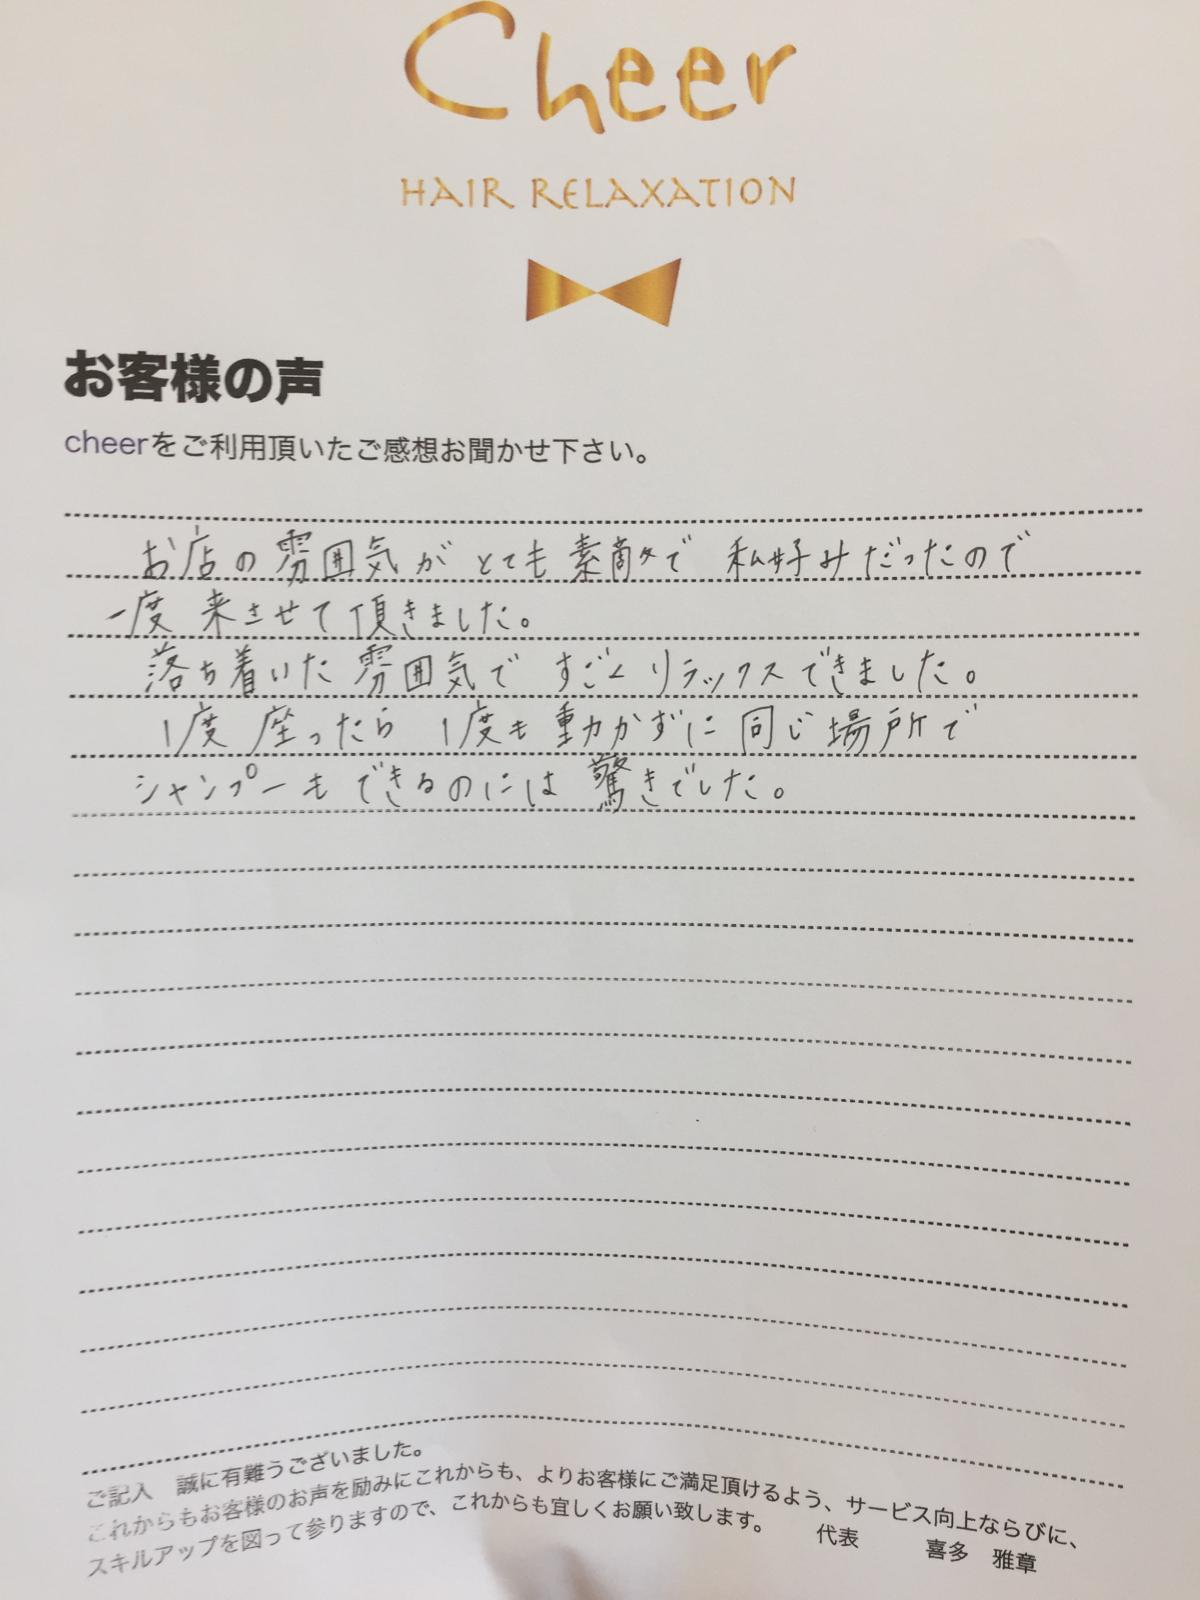 Cheer
HAIR RELAXATION
お客様の声
cheerをご利用頂いたご感想お聞かせ下さい。
お店の雰囲気がとても素敵で 私好みだったので
一度 来させて頂きました。
落ち着いた雰囲気で すごくリラックスできました。
1度 座ったら 1度も動かずに同じ場所で
シャンプーもできるのには驚きでした。
ご記入 誠に有難うございました。
これからもお客様のお声を励みにこれからも、よりお客様にご満足頂けるよう、サービス向上ならびに、
スキルアップを図って参りますので、これからも宜しくお願い致します。 代表 喜多 雅章